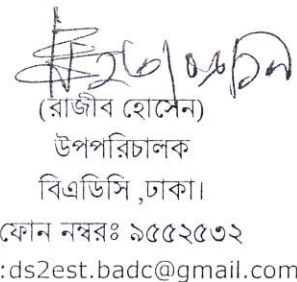 (রাজীব হোসেন)
উপপরিচালক
বিএডিসি ,ঢাকা।
ফোন নম্বরঃ ৯৫৫২৫৩২
:ds2est.badc@gmail.com